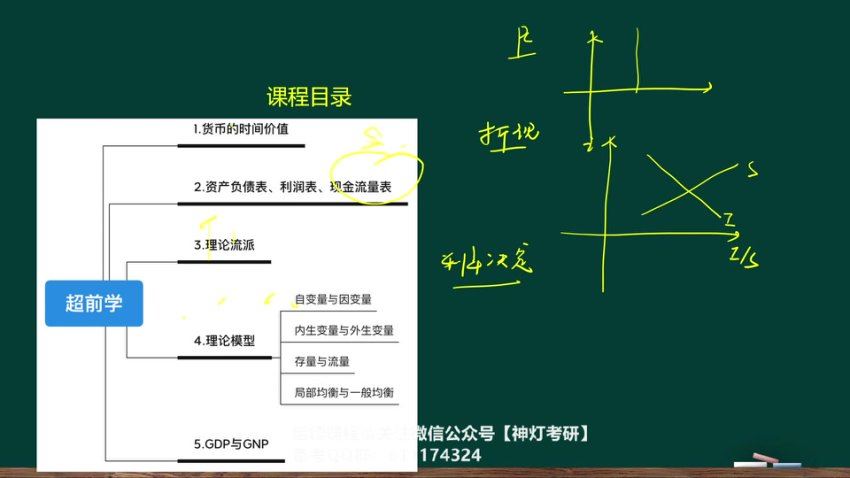 课程目录
1.货币的时间价值
2.资产负债表、利润表、现金流量表
3.理论流派
超前学
4.理论模型
自变量与因变量
内生变量与外生变量
存量与流量
局部均衡与一般均衡
5.GDP与GNP
折现
i
S
I
I/S
利率决定
微信公众号【神灯考研】
174324